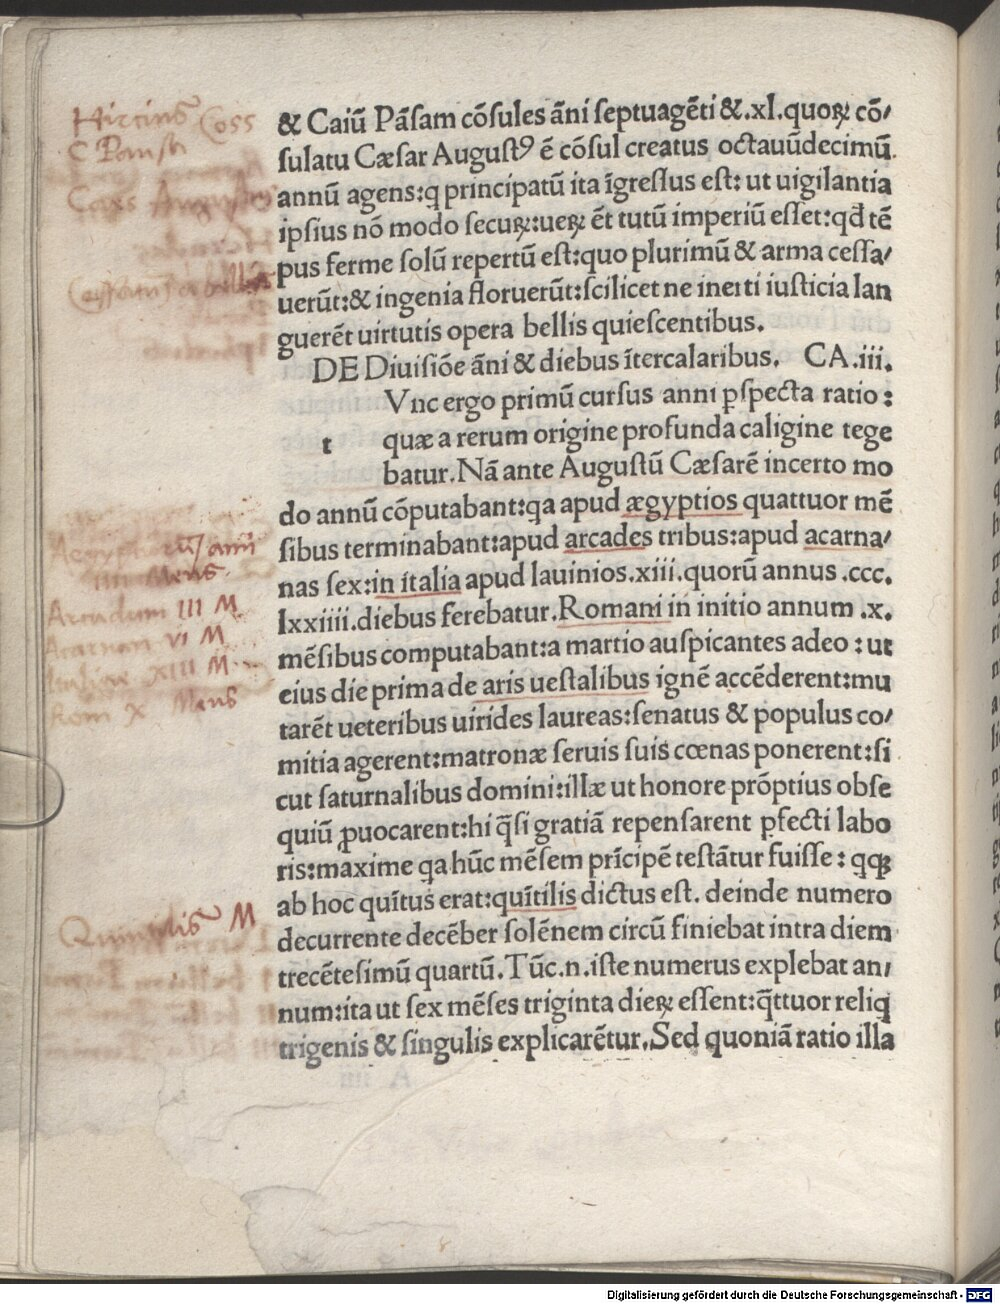 Hircinus Coss
C Pansa
& Caiū Pāſam cōſules āni ſeptuagēti &.xl.quoꝝ cō/
ſulatu Cæſar Auguſtꝰ ē cōſul creatus octauūdecimū.
annū agens:q principatū ita īgreſſus eſt: ut uigilantia
ipſius nō modo ſecuꝝ:ueꝝ ēt tutū imperiū eſſet:qđ tē
pus ferme ſolū repertū eſt:quo plurimū & arma ceſſa/
uerūt:& ingenia floruerūt:ſcilicet ne inerti iuſticia lan
guerēt uirtutis opera bellis quieſcentibus.
DE Diuiſiōe āni & diebus ītercalaribus. CA.iii.
Vnc ergo primū curſus anni ꝑſpecta ratio:
t quæ a rerum origine profunda caligine tege
batur.Nā ante Auguſtū Cæſarē incerto mo
do annū cōputabant:qa apud ægyptios quattuor mē
ſibus terminabant:apud arcades tribus:apud acarna/
nas ſex:in italia apud lauinios.xiii.quorū annus .ccc.
lxxiiii.diebus ferebatur.Romani in initio annum .x.
mēſibus computabant:a martio auſpicantes adeo : ut
eius die prima de aris ueſtalibus ignē accēderent:mu
tarēt ueteribus uirides laureas:ſenatus & populus co/
mitia agerent:matronæ ſeruis ſuis cœnas ponerent:ſi
cut ſaturnalibus domini:illæ ut honore prōptius obſe
quiū ꝓuocarent:hi q̄ſi gratiā repenſarent ꝑfecti labo
ris:maxime qa hūc mēſem prīcipē teſtātur fuiſſe : qꝗꝝ
ab hoc quītus erat:quītilis dictus eſt. deinde numero
decurrente decēber ſolēnem circū finiebat intra diem
trecēteſimū quartū.Tūc.n.iſte numerus explebat an/
num:ita ut ſex mēſes triginta dieꝝ eſſent:q̄ttuor reliq
trigenis & ſingulis explicarētur.Sed quoniā ratio illa
Arcadum III M
Acarnan VI M
Italiae XIII M
Rom X Mens
Quintilis M
Digitalisierung gefördert durch die Deutsche Forschungsgemeinschaft - DFG